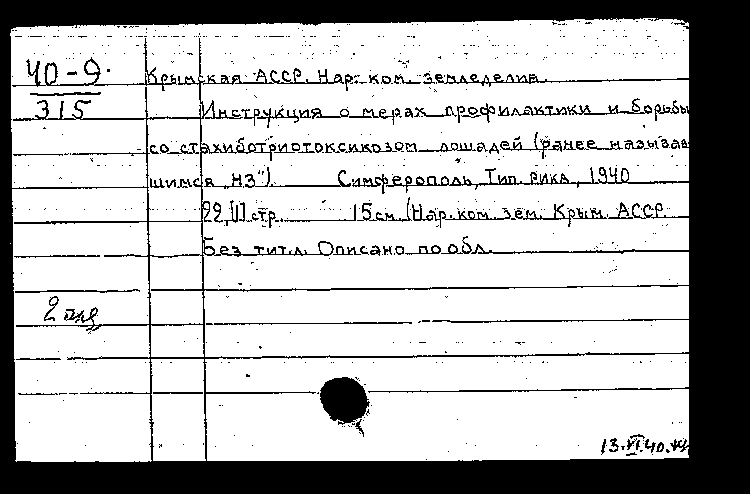 40-9.
315
Крымская АССР. Нар. ком. земледелия.
Инструкция о мерах профилактики и борьбы
со стахиботриотоксикозом лошадей (ранее называв
шимся „НЗ").    Симферополь, Тип. РИКА, 1940
22, [1] стр.    15 см. (Нар. ком. зем. Крым. АССР.
Без тит. л. Описано по обл.
2 экз
13.VI.40.